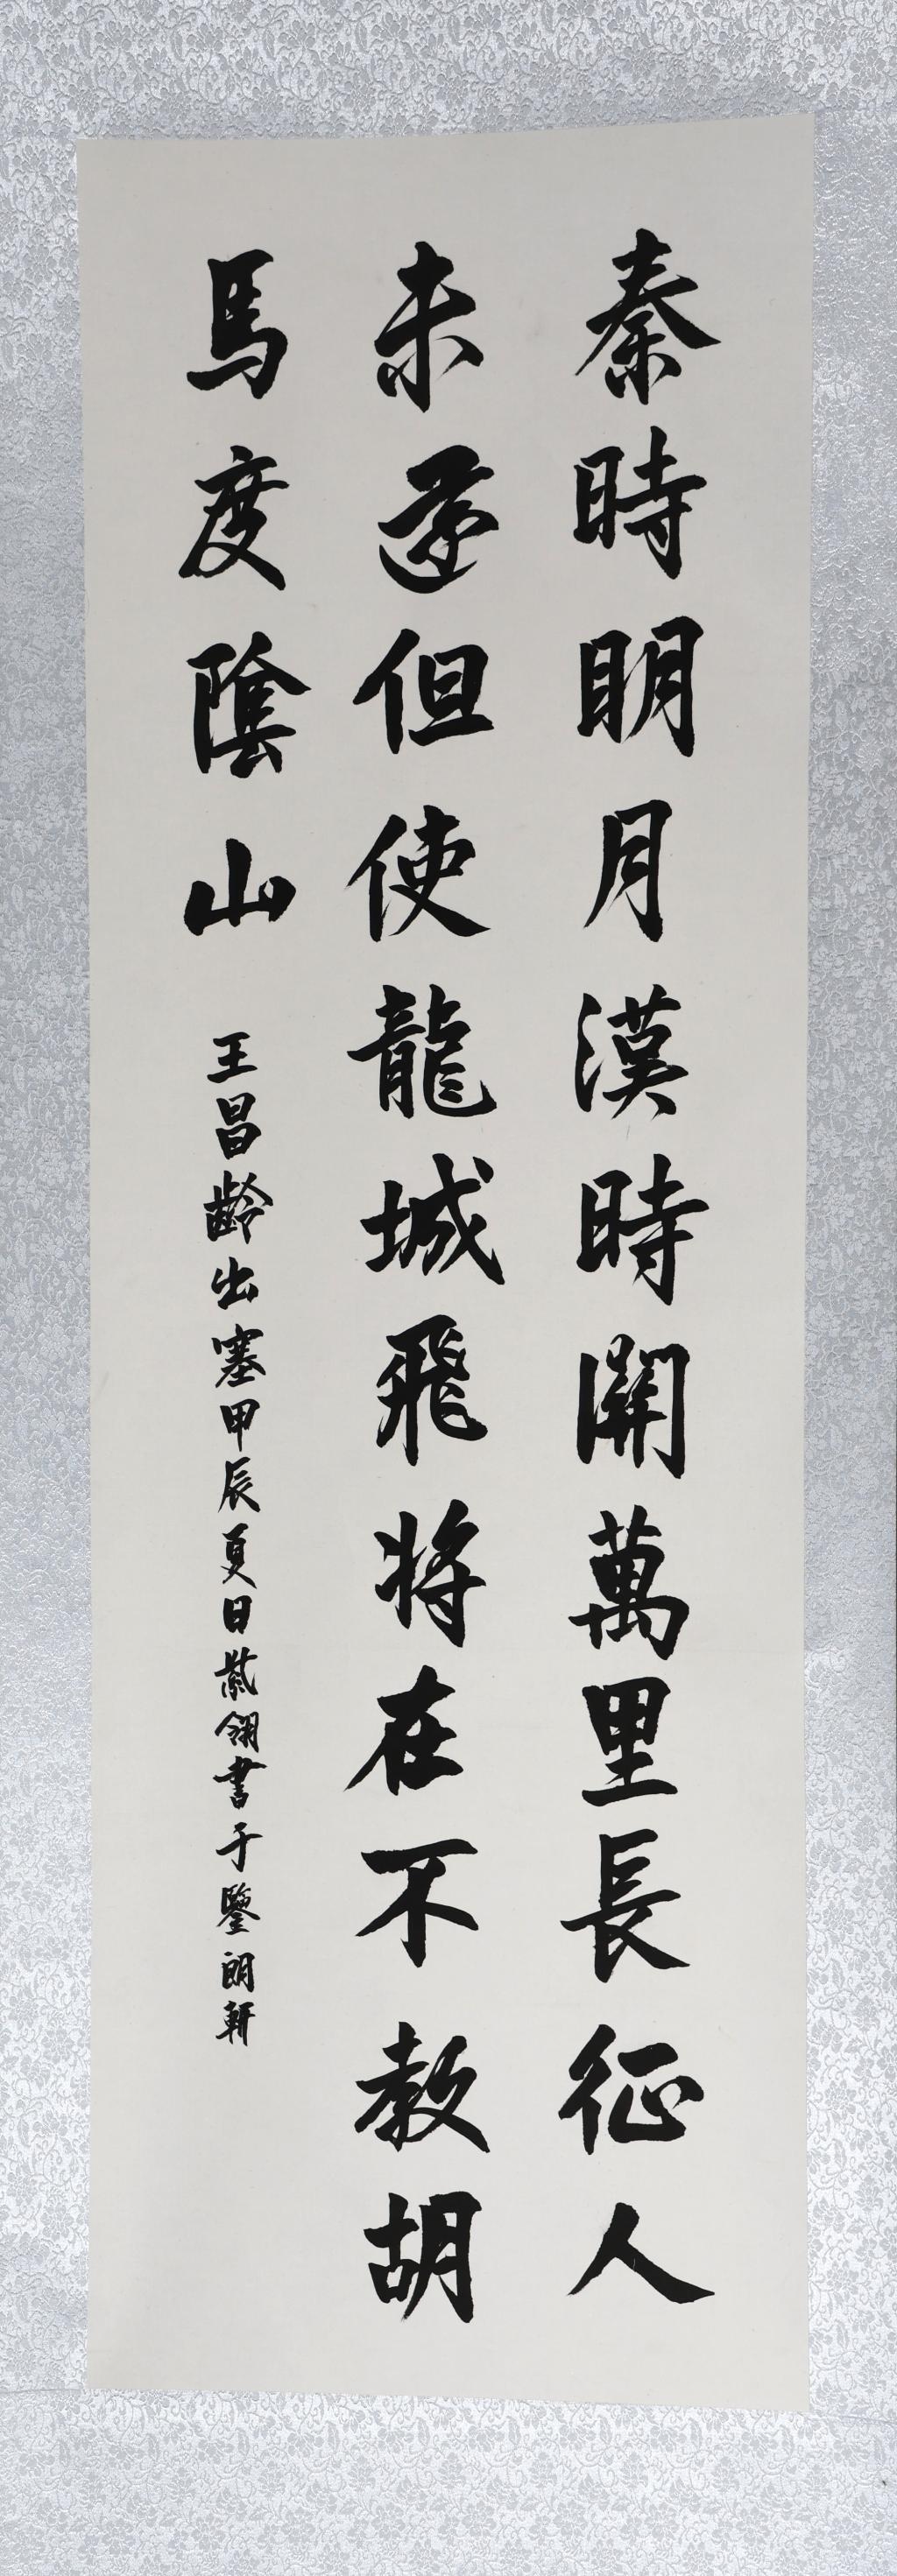 秦時明月漢時關萬里長征人
未還但使龍城飛將在不教胡
馬度陰山
王昌齡出塞甲辰夏日翎書于鑒朗軒